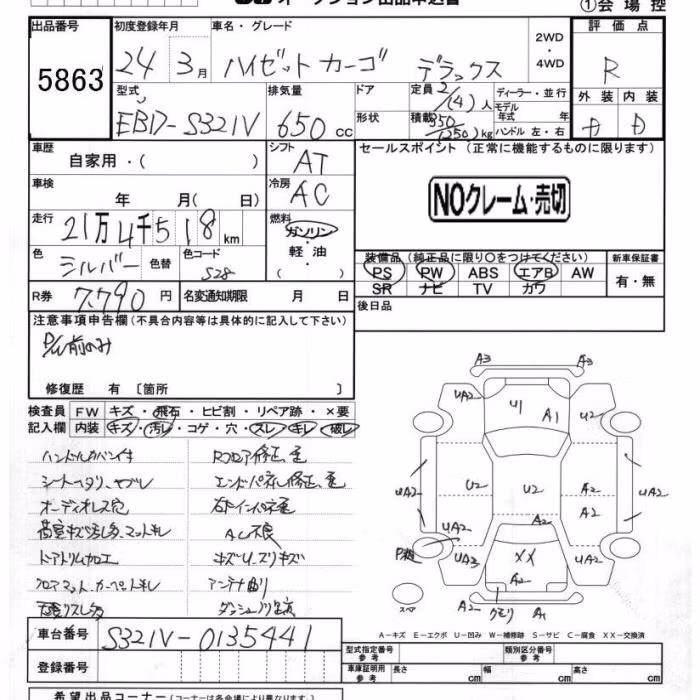 オークション出品申込書
①会場控
出品番号 5863
初度登録年月 24年 3月
車名・グレード ハイゼットカーゴ デラックス
2WD・4WD
評価点 R
外装 内装
型式 EBD-S321V
排気量 650 cc
ドア
形状
定員 2/(4)人
積載 350/(250)kg
ディーラー・並行
モデル年式 年
ハンドル 左・右
車歴 自家用・( )
シフト AT
セールスポイント(正常に機能するものに限ります)
NOクレーム・売切
車検 年 月( 日)
冷房 AC
走行 21万4千518km
燃料 ガソリン・軽油( )
色 シルバー 色替
色コード S28
装備品(純正品に限り〇をつけてください)
PS PW ABS エアB AW
SR ナビ TV カワ
新車保証書 有・無
R券 7,790円
名変通知期限 月 日
後日品
注意事項申告欄(不具合内容等は具体的に記入して下さい)
P/W前のみ
修復歴 有〔箇所 〕
検査員記入欄
FW キズ・飛石・ヒビ割・リペア跡・×要
内装 キズ・汚レ・コゲ・穴・スレ・キレ・破レ
ハンドルカバー付
シートヘタリ、ヤブレ
オーディオレス穴
荷室キズ汚し多、マットキレ
ドアトリム加工
フロアマット、カーペットキレ
Rフロア修正、歪
エンドパネル修正、歪
AC不良
キズU、スリキズ
アンテナ曲り
A3 A3
UA2 U1 A1 UA2
UA2 U2 U2 A2 UA2
A2
UA2
P穴 UA3 XX UA2
A2
A2 クモリ A1
スペア
A-キズ E-エクボ U-凹み W-補修跡 S-サビ C-腐食 XX-交換済
車台番号 S321V-0135441
登録番号
型式指定番号 参考
類別区分番号 参考
車庫証明用 参考 長さ cm 幅 cm 高さ cm
希望出品コーナー(コーナーは各会場により異なります)